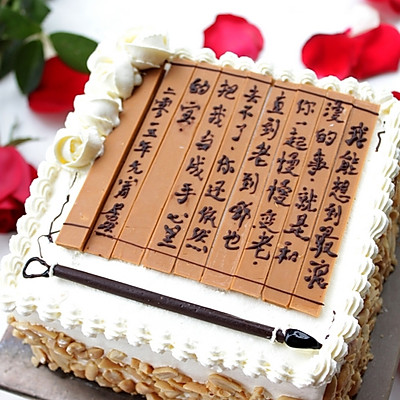 我能想到最浪
漫的事，就是和
你一起慢慢变老.
直到老到哪也
去不了.你还依然
把我当成手心里
的宝.
二零一三年元